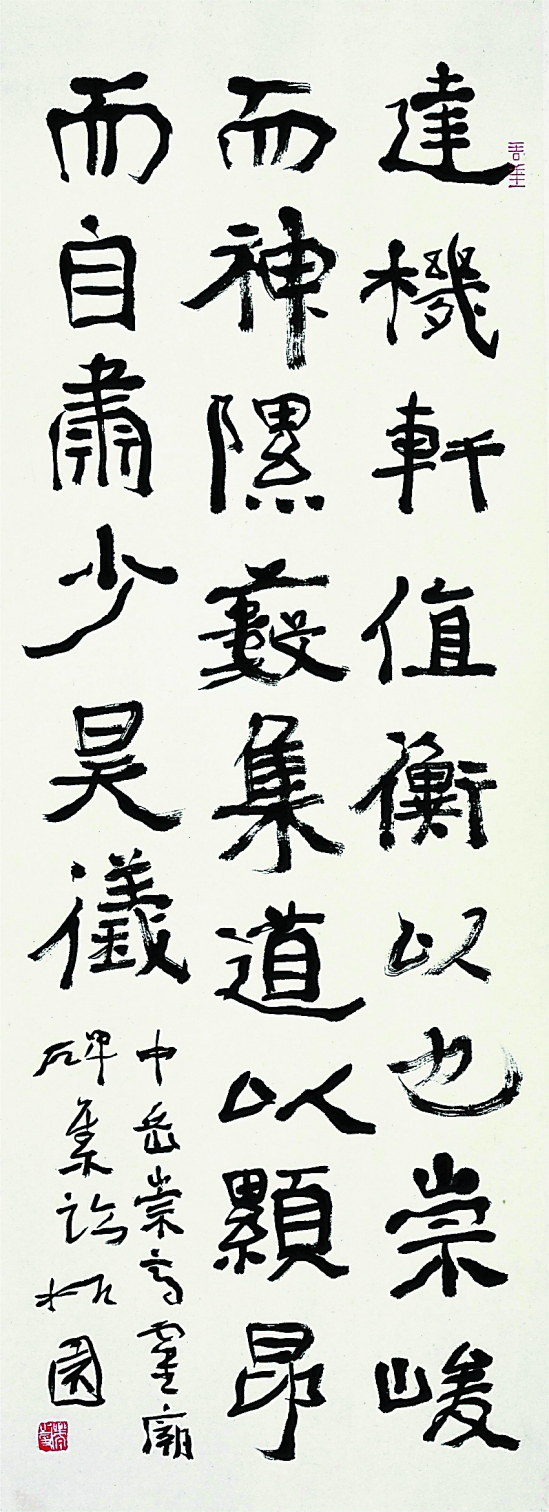 達機軒值衡以也崇峻
而神隰藪集道以顯昂
而自肅少昊儀
中岳崇高靈廟
碑集